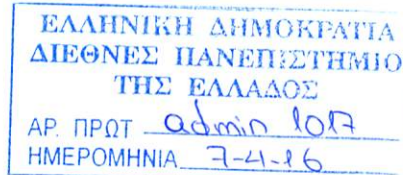 ΕΛΛΗΝΙΚΗ ΔΗΜΟΚΡΑΤΙΑ
ΔΙΕΘΝΕΣ ΠΑΝΕΠΙΣΤΗΜΙΟ
ΤΗΣ ΕΛΛΑΔΟΣ
ΑΡ. ΠΡΩΤ admin 1017
ΗΜΕΡΟΜΗΝΙΑ 7-4-16